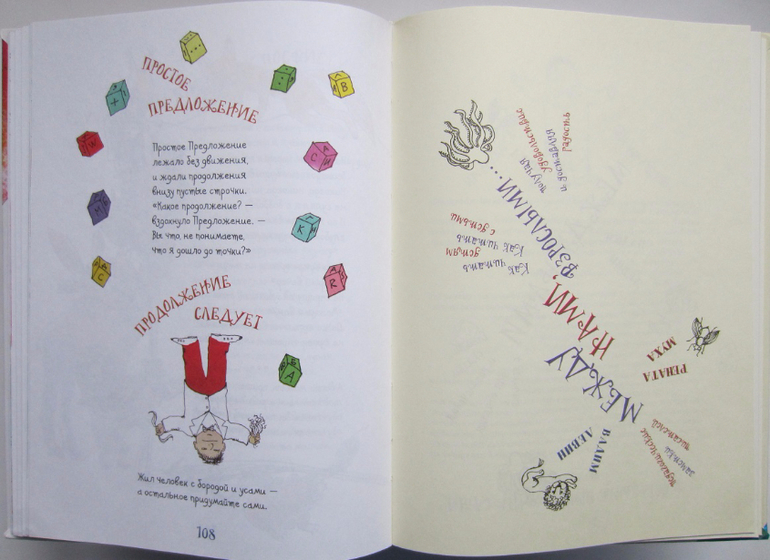 ПРОСТОЕ
ПРЕДЛОЖЕНИЕ
Простое Предложение
лежало без движения,
и ждали продолжения
внизу пустые строчки.
«Какое продолжение? —
вздохнуло Предложение. —
Вы что, не понимаете,
что я дошло до точки?»
ПРОДОЛЖЕНИЕ
СЛЕДУЕТ
Жил человек с бородой и усами —
а остальное придумайте сами.
108
...
+
:
В
W
С И
М
К
С
R
А
ВАДИМ
ЛЕВИН
РЕНАТА
МУХА
МЕЖДУ
НАМИ,
ВЗРОСЛЫМИ...
педагогические
заметки
писателей
Как читать
детям
Как читать
с детьми
получая
удовольствие
и доставляя
радость